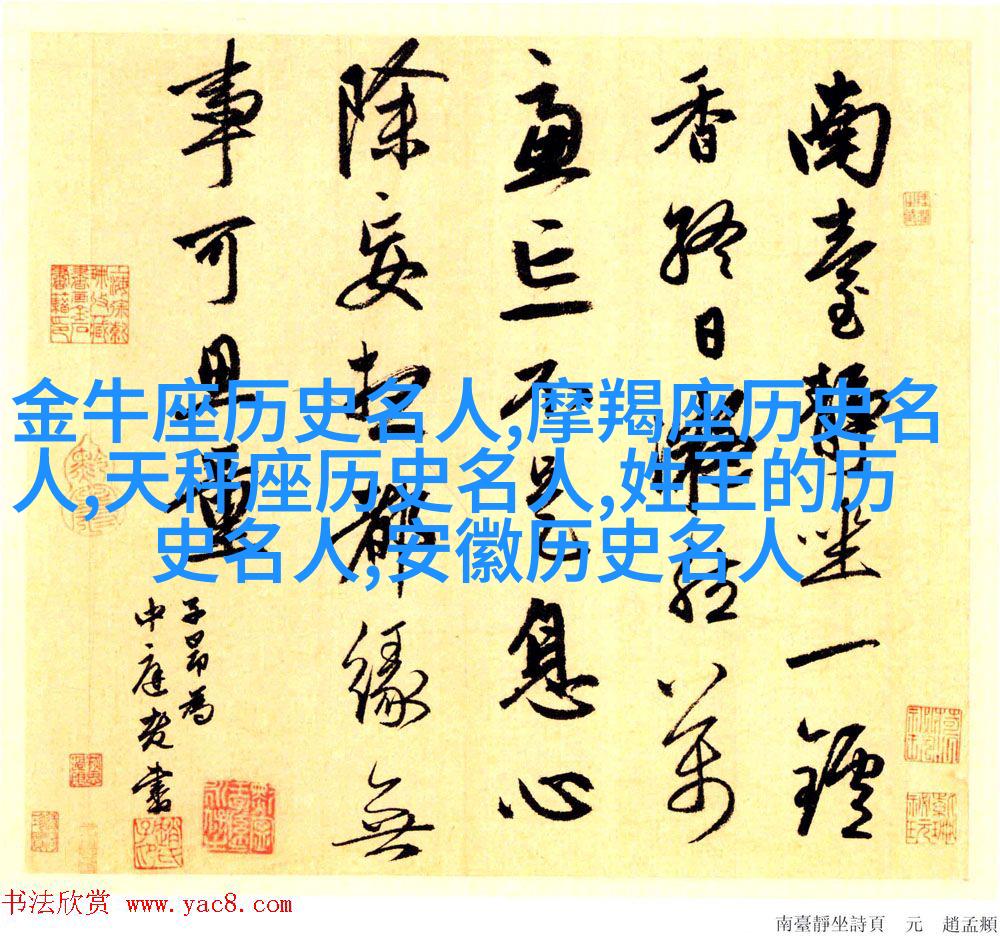 南臺靜坐一鑪
香終日凝然萬
慮亡不是息心
除妄想都緣無
事可思量
子昂為
中庭老書
金牛座历史名人,摩羯座历史名
人,天秤座历史名人,姓王的历
史名人,安徽历史名人
书法欣赏 www.yac8.com
南臺靜坐詩頁 元 趙孟頫